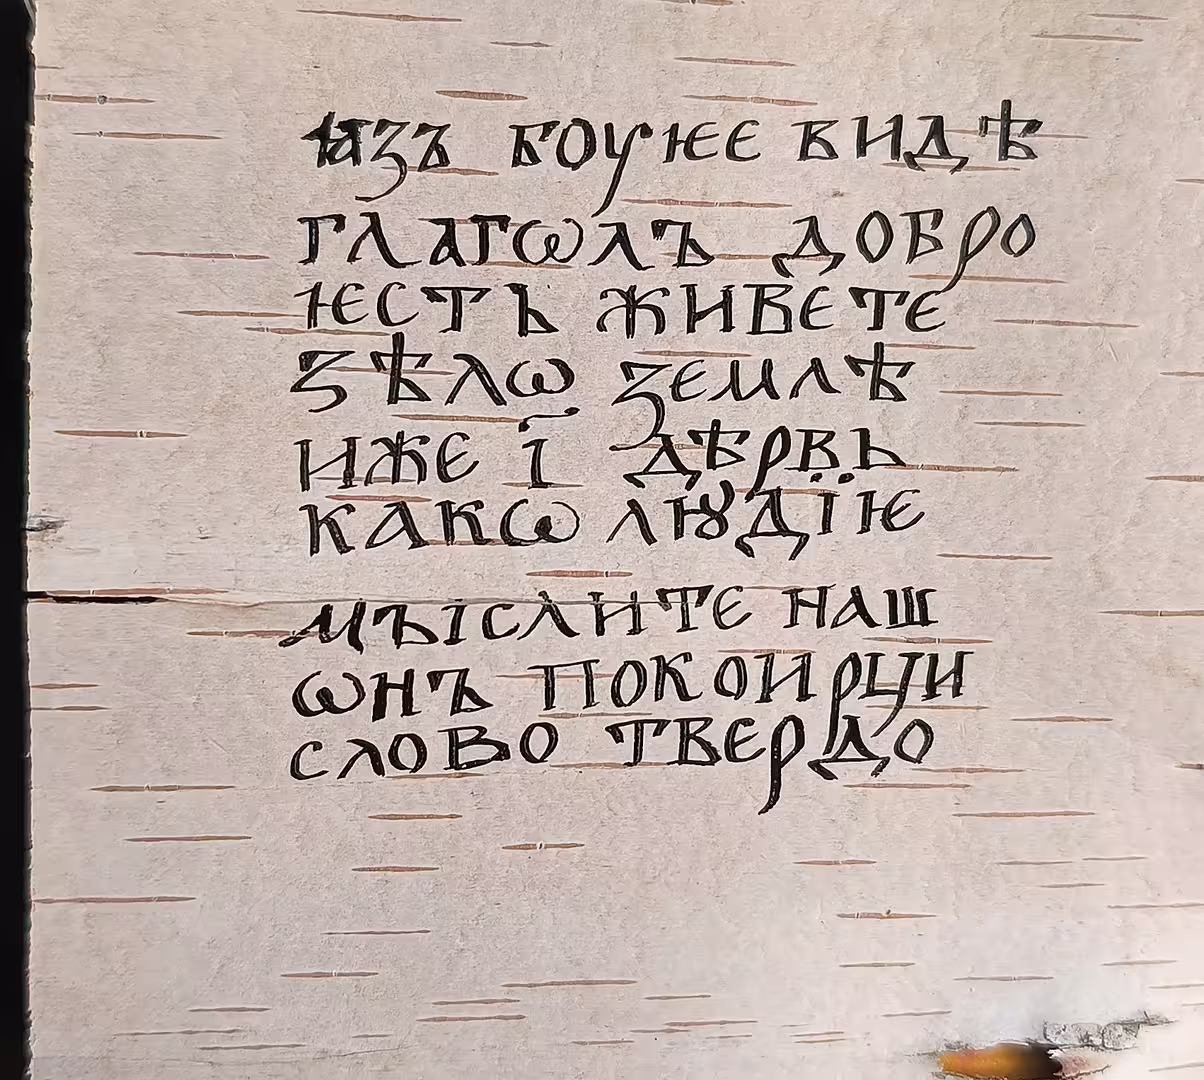 ꙗзъ боукѥе видѣ
глагѡлъ добро
ѥсть живєтє
зѣлѡ земл҄ѣ
ижє ї дѣрвь
какѡ людїѥ
мꙑслитє наш
ѡнъ покои рци
слово твєрдо